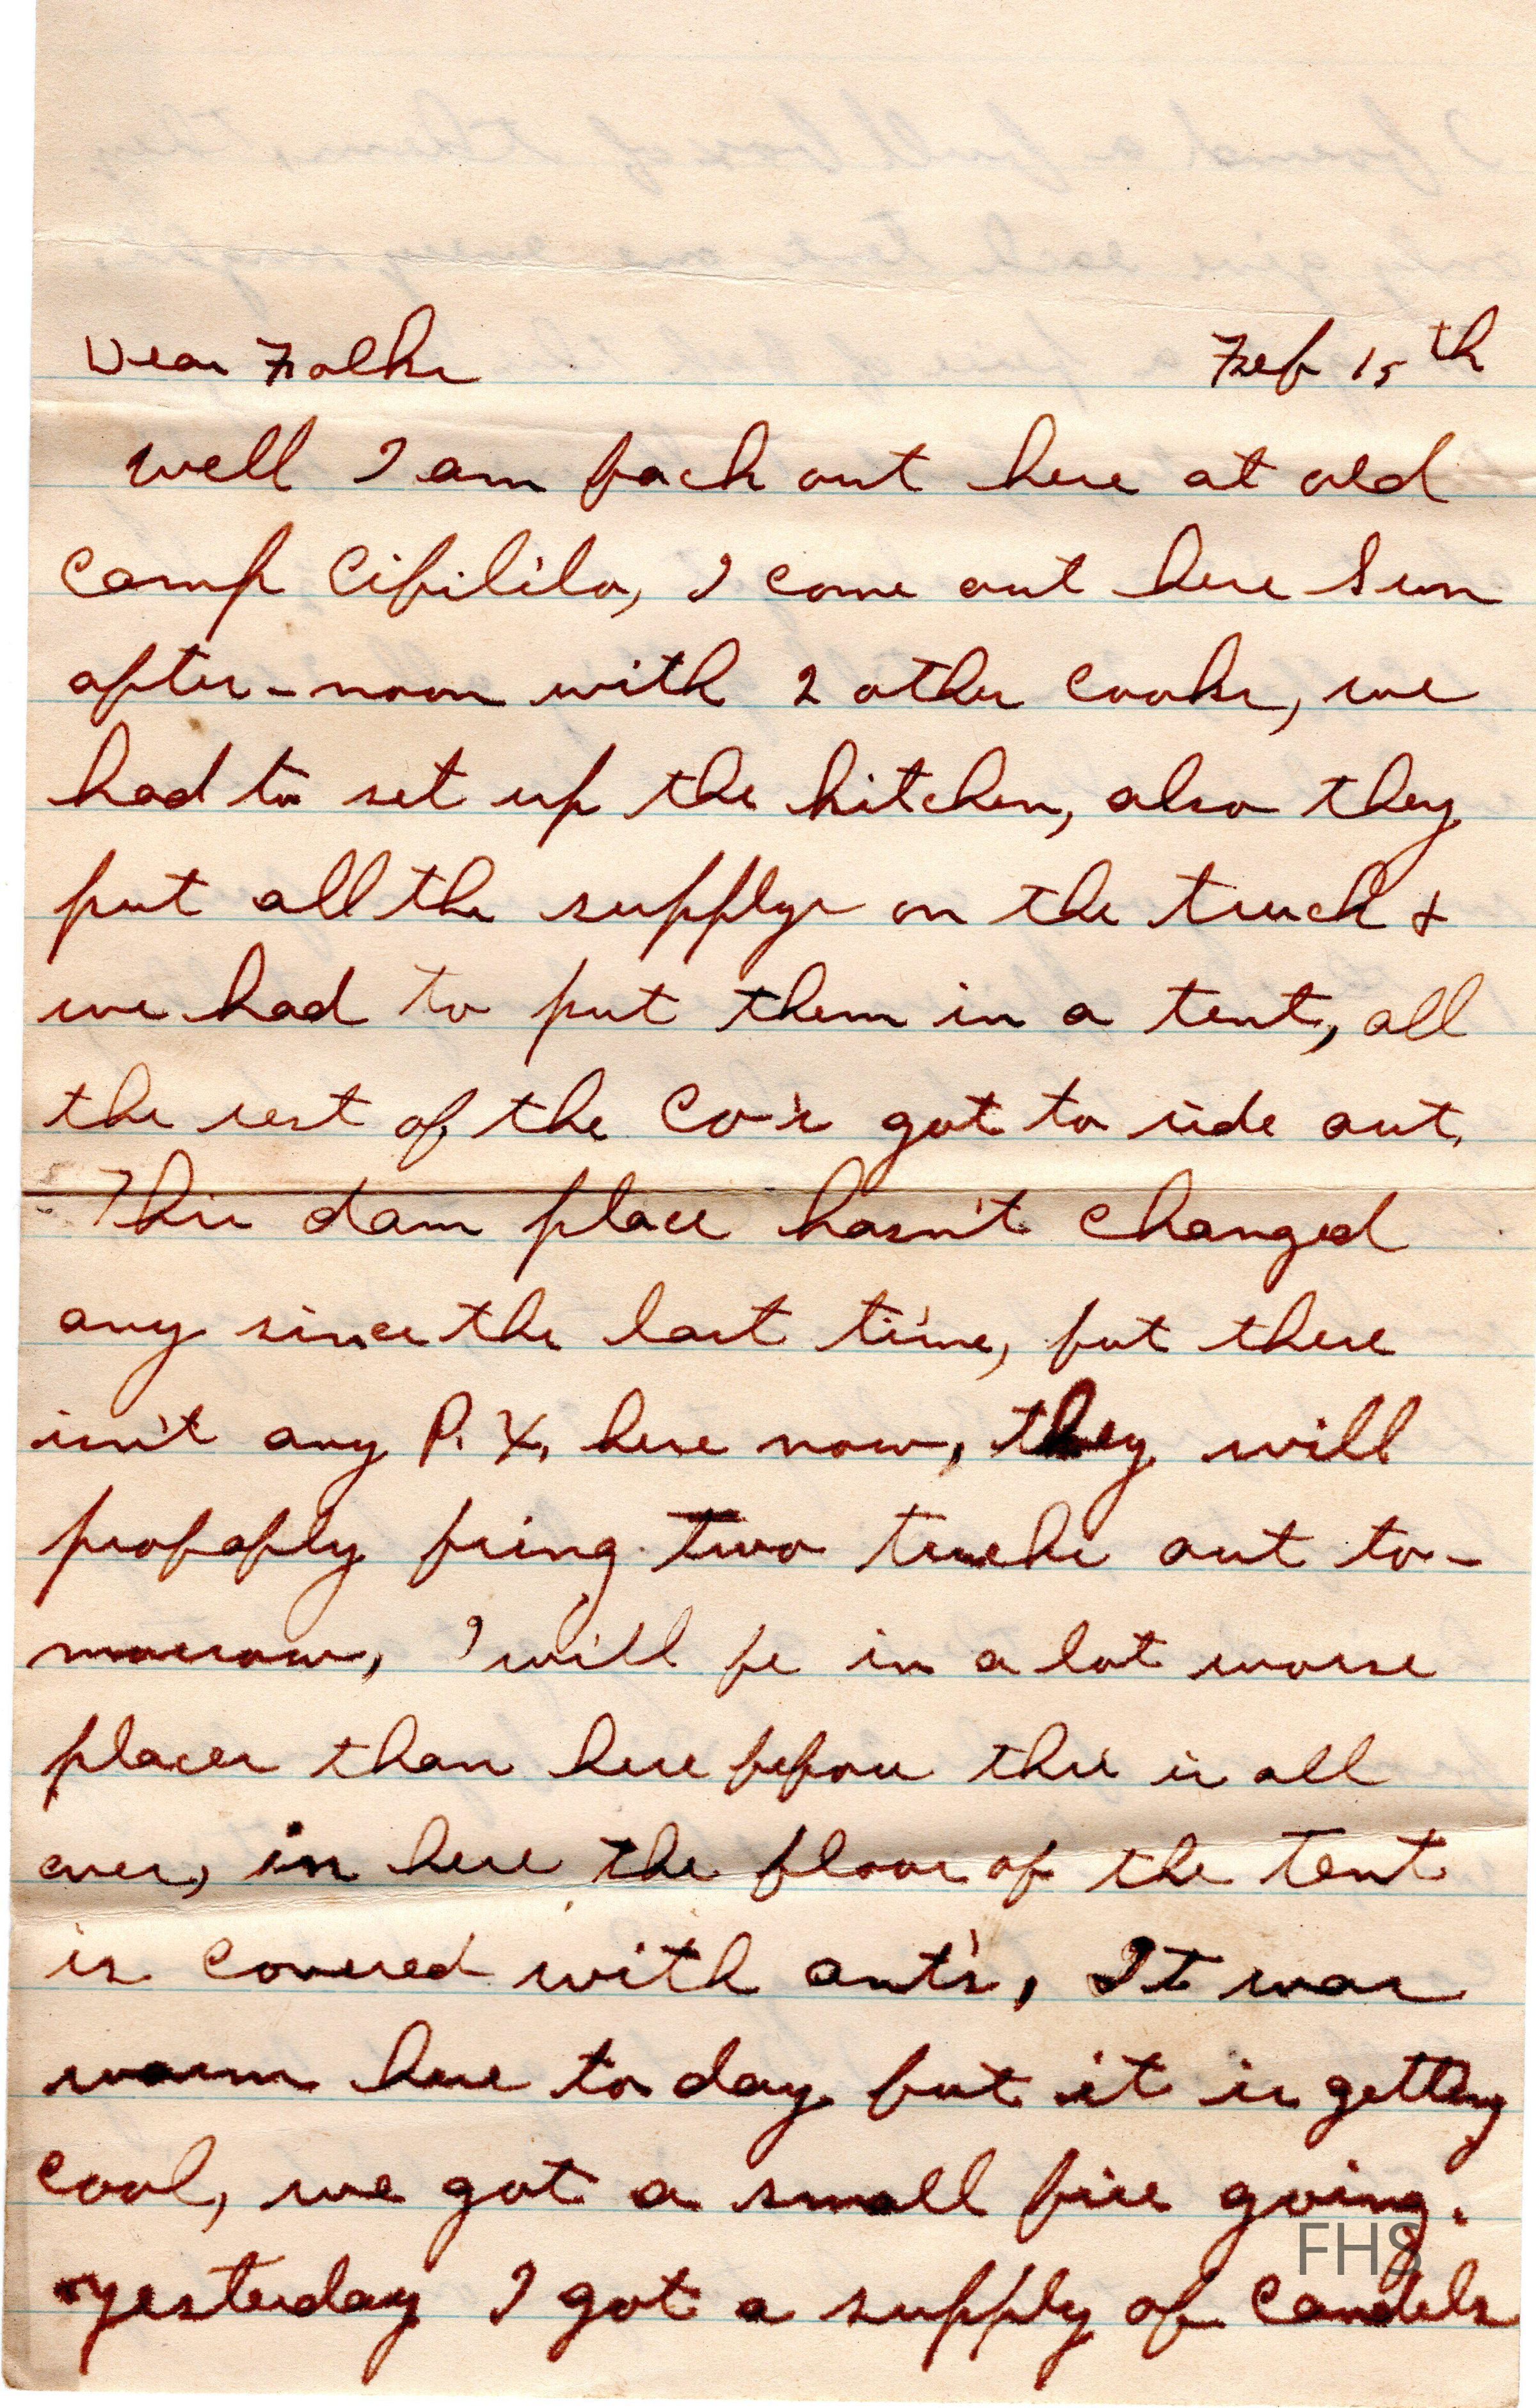 Dear Folks Feb 15th
well I am back out here at old
camp Cibilila, I come out here Sun
after-noon with 2 other cooks, we
had to set up the kitchen, also they
put all the supplys on the truck &
we had to put them in a tent, all
the rest of the Co's got to ride out.
This dam place hasn't changed
any since the last time, but there
isn't any P.X. here now, they will
probably bring two trucks out to-
morrow, I will be in a lot worse
places than here before this is all
over, in here the floor of the tent
is covered with ant's, It was
warm here to day but it is getting
cool, we got a small fire going.
yesterday I got a supply of candels
FHS